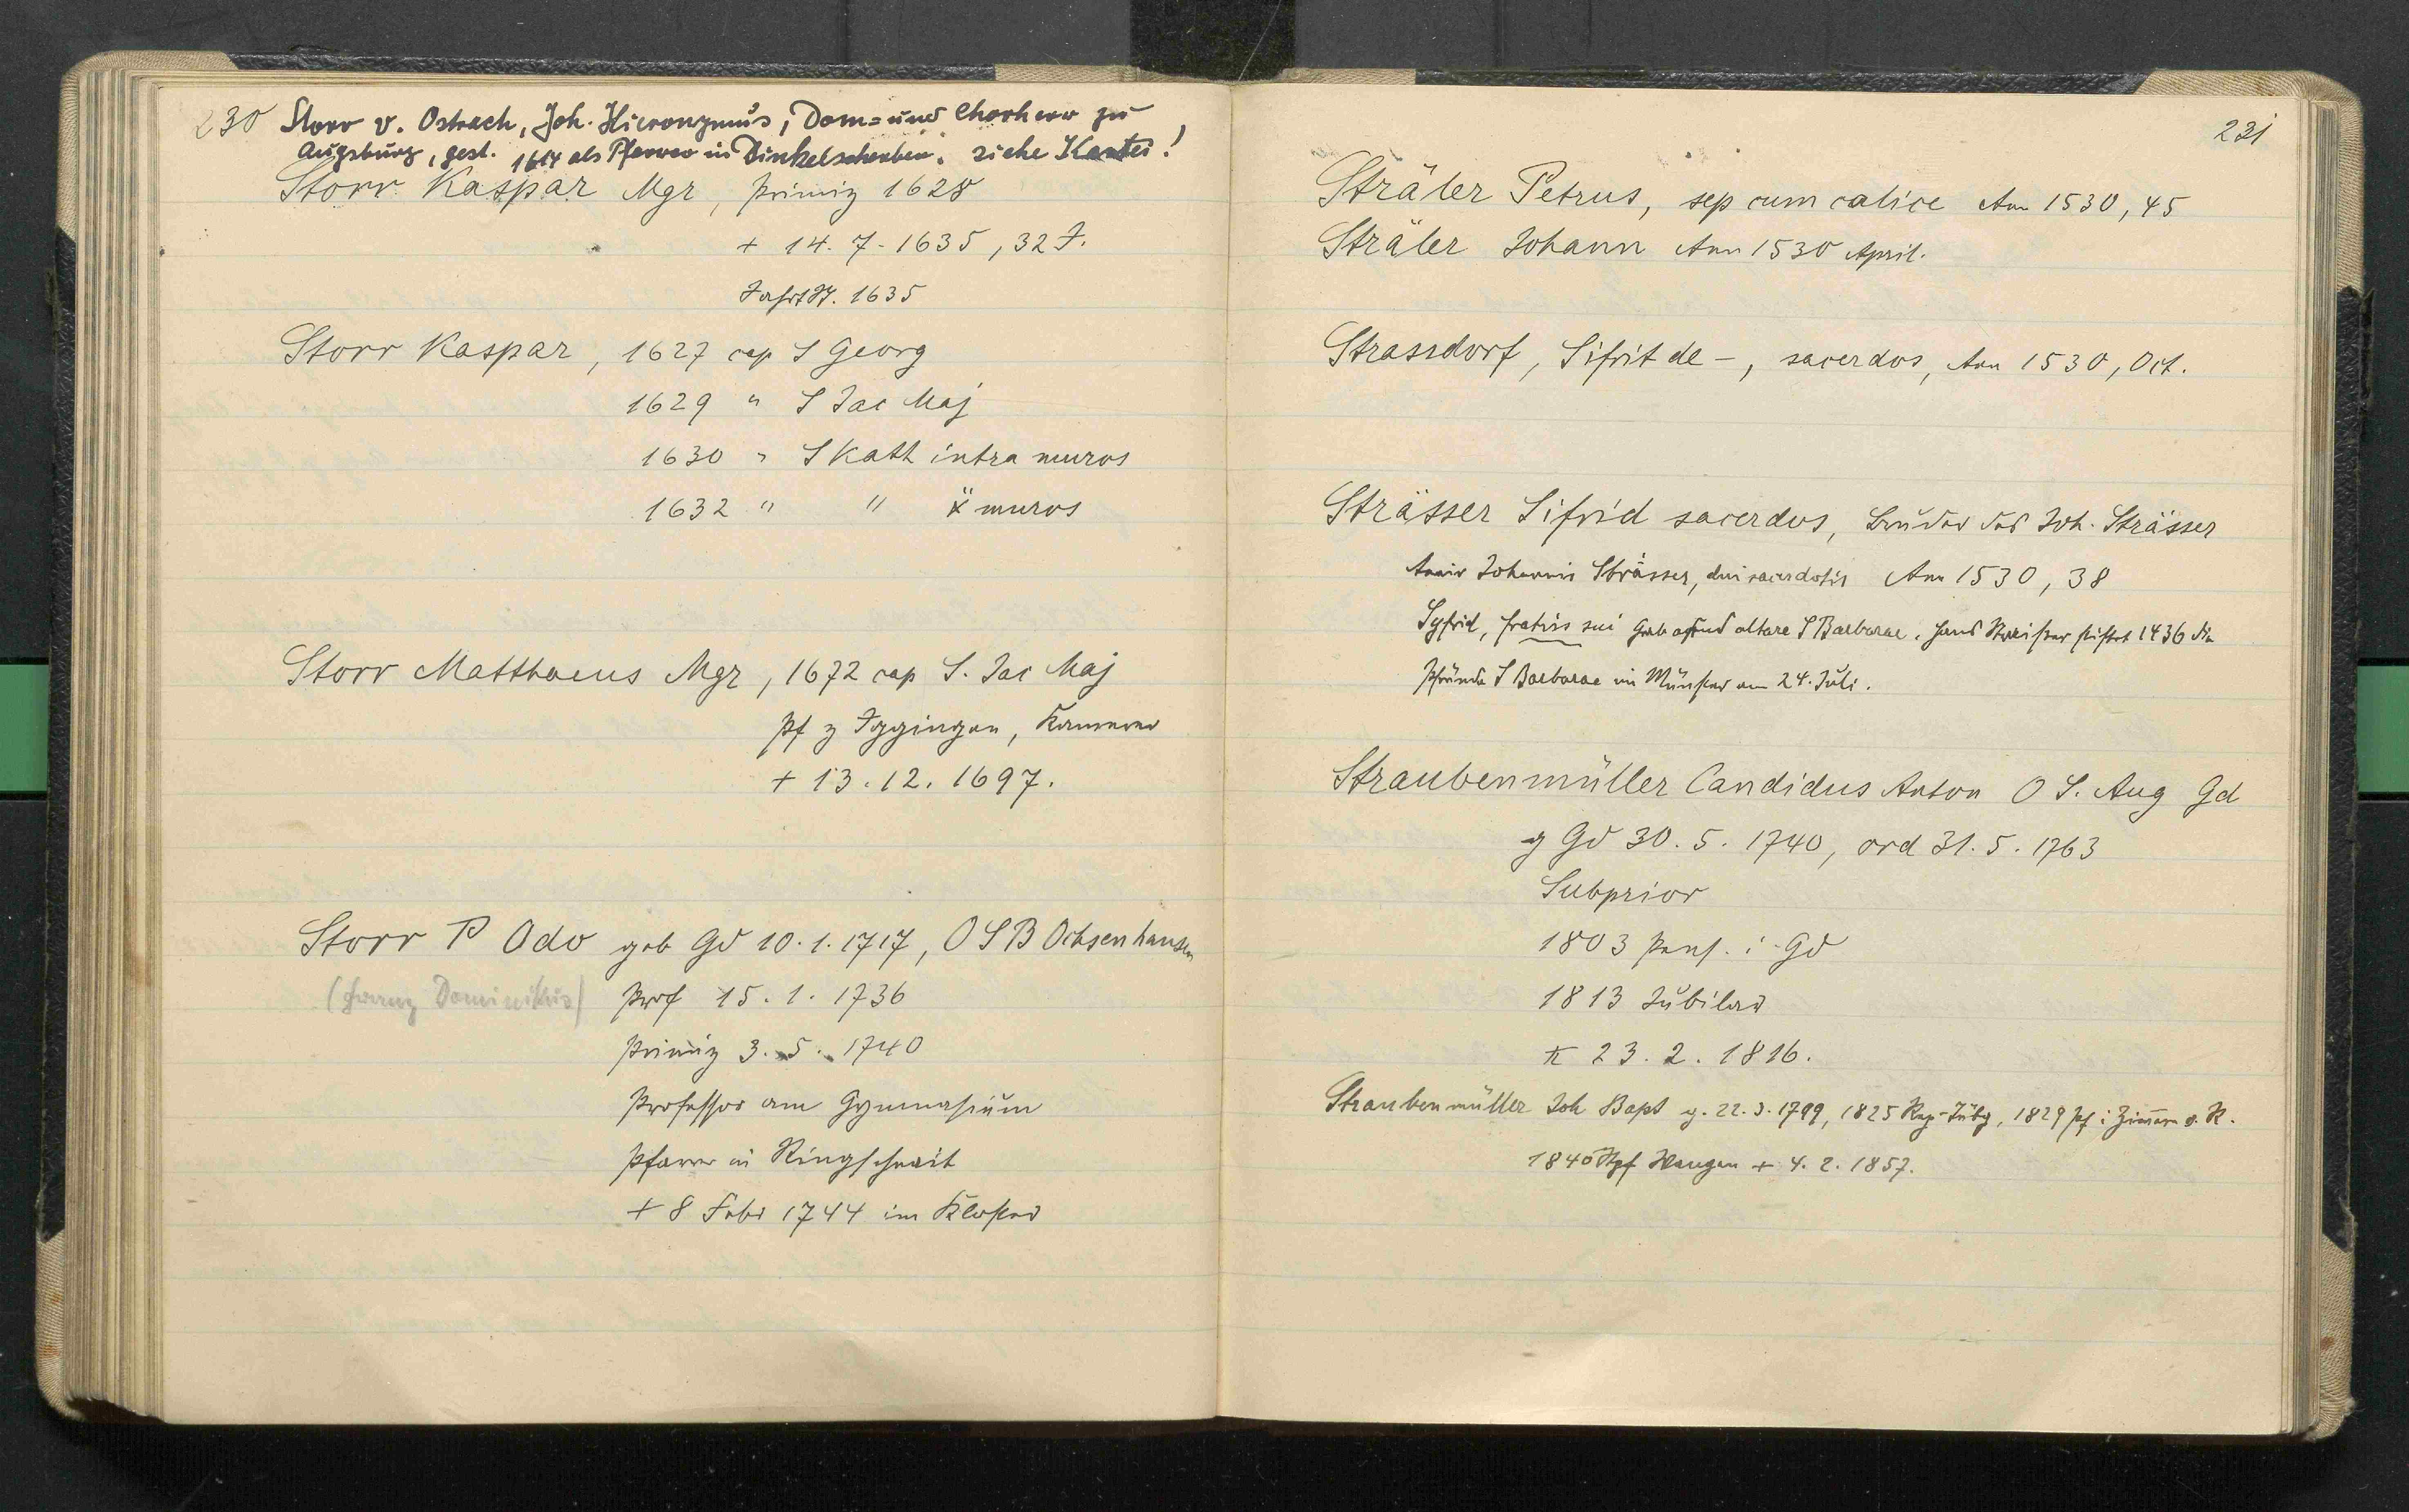 230 Storr v. Ostrach, Joh. Hieronymus, Dom= und Chorherr zu
Augsburg, gest. 1614 als Pfarrer in Dinkelscherben. siehe Kartei!
Storr Kaspar Mgr, Primiz 1628
+ 14. 7. 1635, 32 J.
1635
Storr Kaspar, 1627 cap S Georg
1629 " S Jac Maj
1630 " S Kath intra muros
1632 " " x muros
Storr Matthaeus Mgr, 1672 cap S. Jac Maj
Pf z Iggingen, Kammerer
+ 13. 12. 1697.
Storr P Odo geb Gd 10. 1. 1717, O S B Ochsenhausen
(Franz Dominikus) Prof 15. 1. 1736
Primiz 3. 5. 1740
Professor am Gymnasium
Pfarrer in Ringschnait
+ 8 Febr 1744 im Kloster
231
Sträler Petrus, sep cum calice Ann 1530, 45
Sträler Johann Ann 1530 April.
Strassdorf, Sifrit de -, sacerdos, Ann 1530, Oct.
Strässer Sifrid sacerdos, Bruder des Joh. Strässer
Anniv Johannis Strässer, dni sacerdotis Ann 1530, 38
Syfrid, fratris sui Grab apud altare S Barbarae. Hans Strässer stiftet 1436 die
Pfründe S Barbarae im Münster am 24. Juli.
Straubenmüller Candidus Anton O S. Aug Gd
g Gd 30. 5. 1740, ord 31. 5. 1763
Subprior
1803 Pens. i. Gd
1813 Jubilar
+ 23. 2. 1816.
Straubenmüller Joh Bapt g. 22. 3. 1799, 1825 Rep. Tübg, 1829 Pf i Zimmern o. R.
1840 Stpf Wangen + 4. 2. 1857.